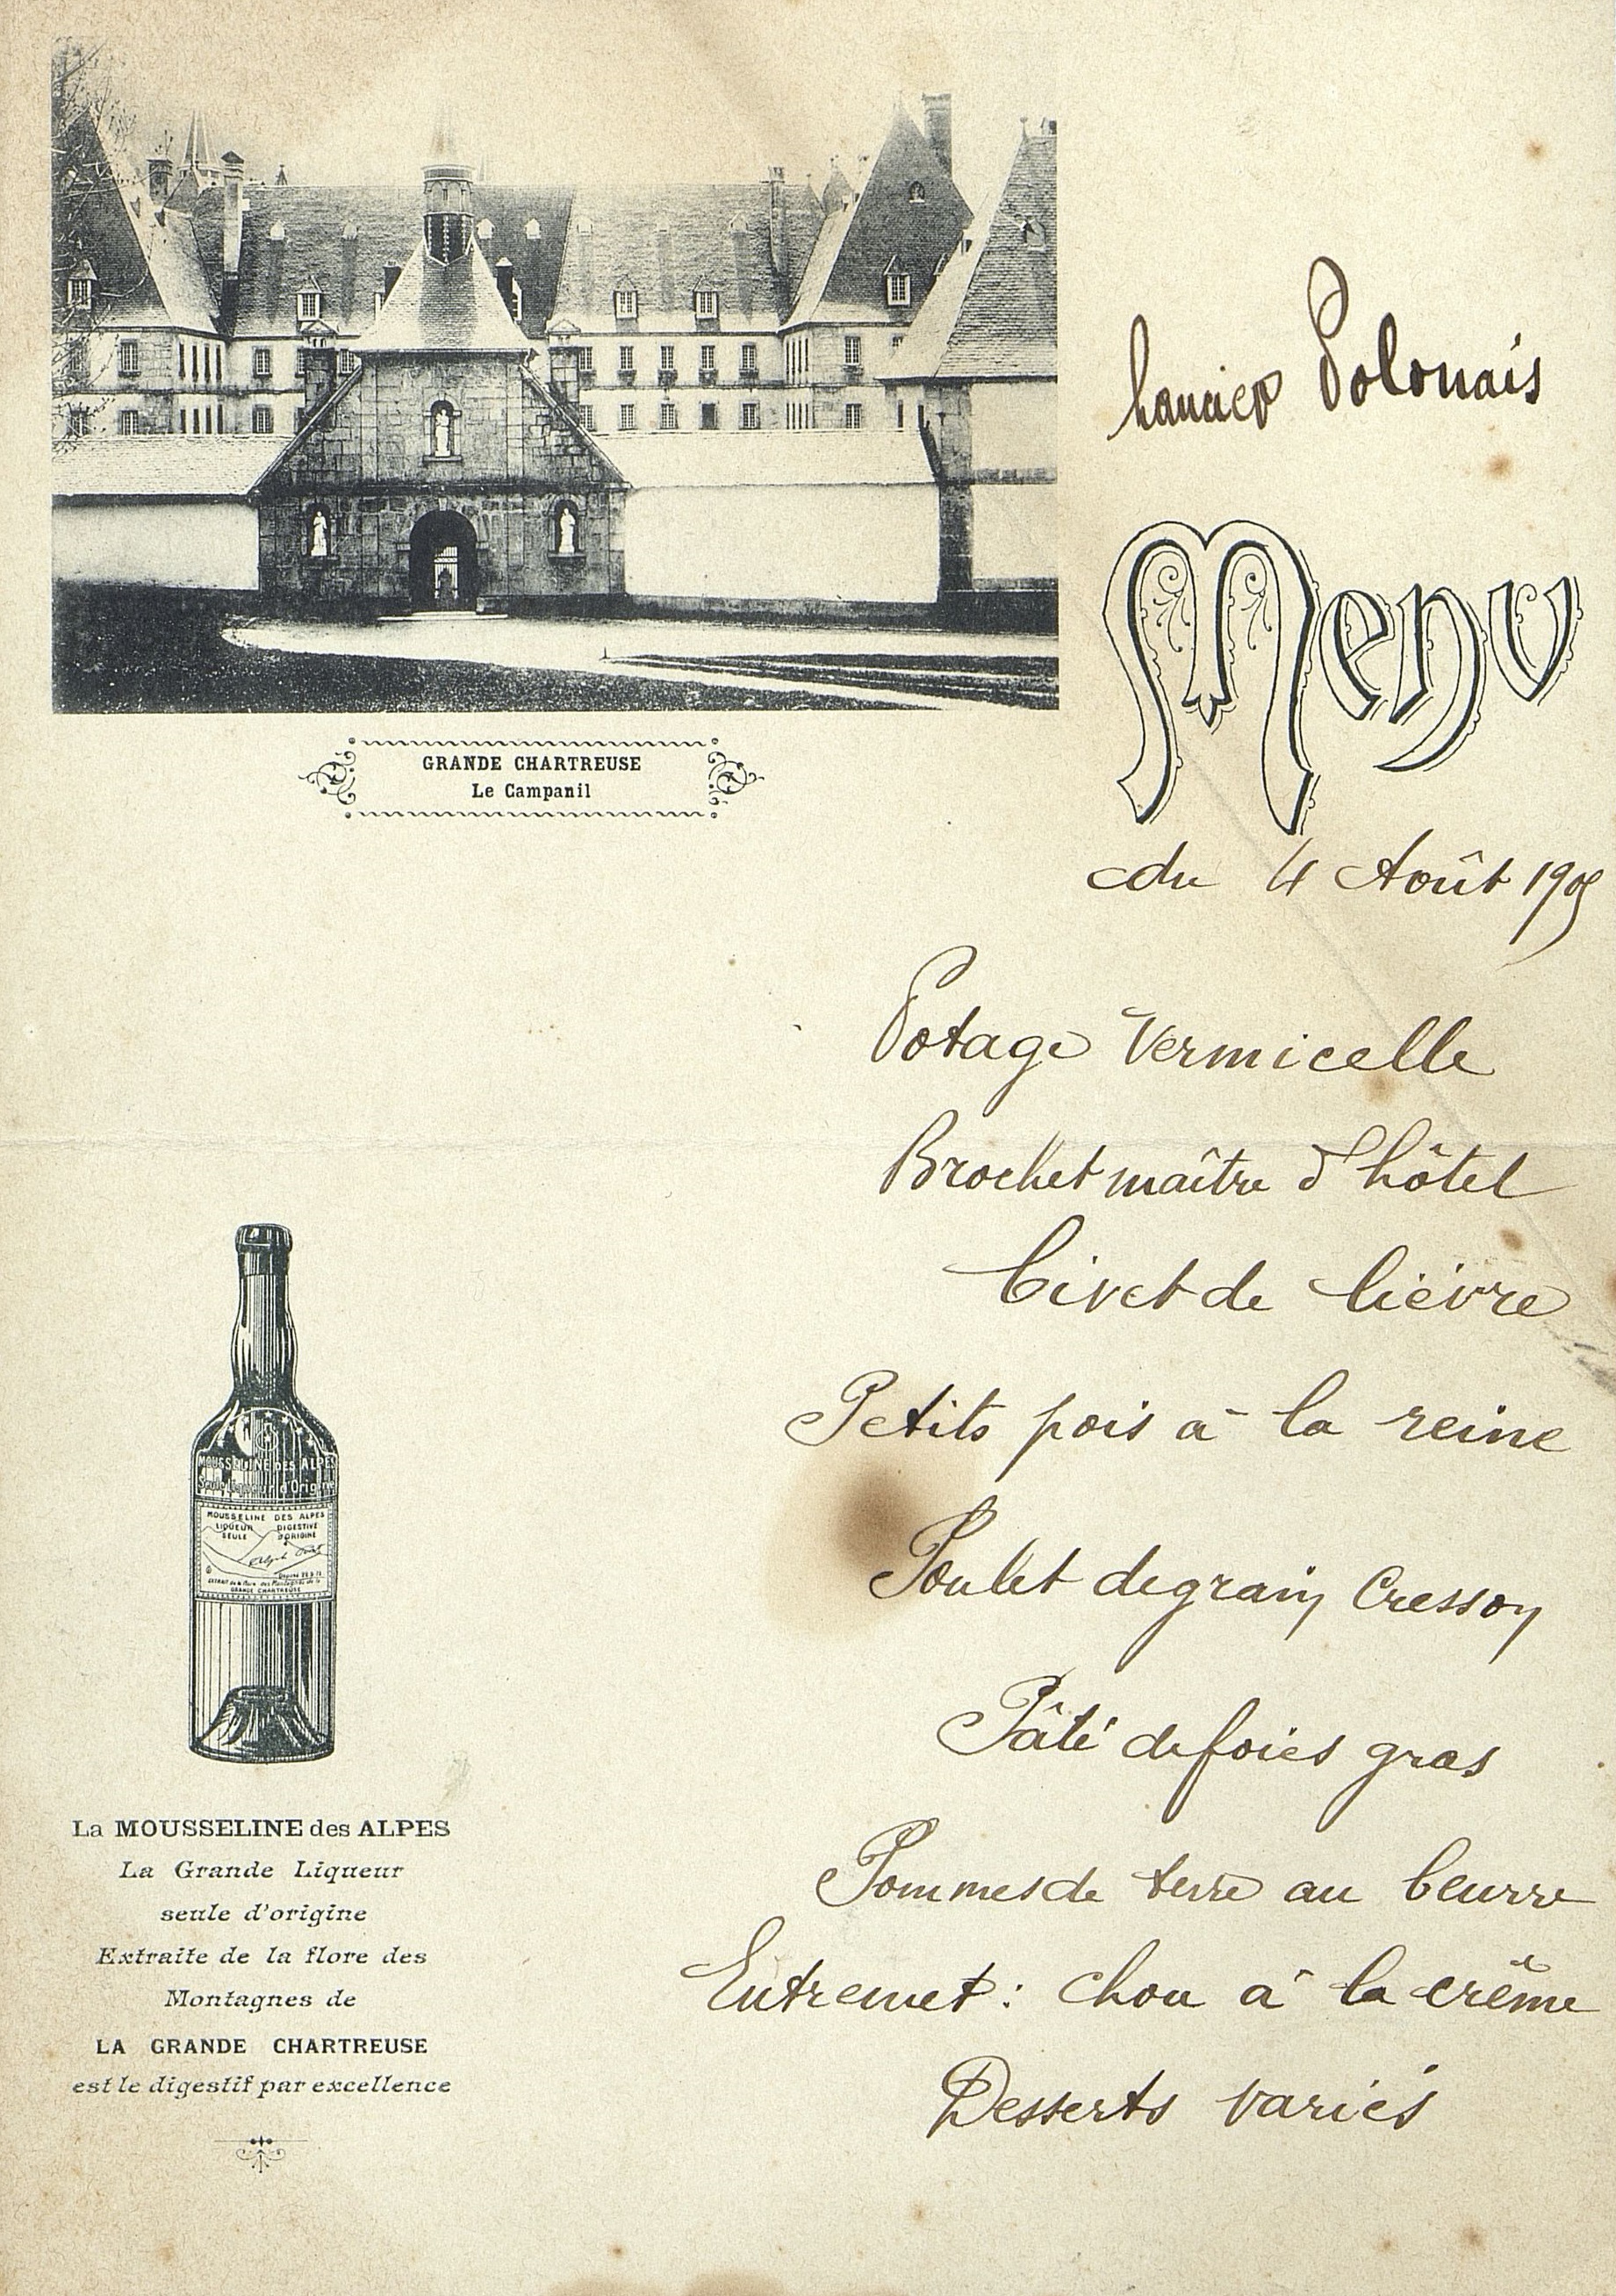 Polonais
Menu
du 4 Août 190
Potage Vermicelle
Brochet maître d'hôtel
Civet de lièvre
Petits pois à la reine
Poulet de grain Cresson
Pâté de foies gras
Pommes de terre au beurre
Entremet : chou à la crême
Desserts variés
GRANDE CHARTREUSE
Le Campanil
MOUSSELINE DES ALPES
Seule Liqueur d'Origine
MOUSSELINE DES ALPES
LIQUEUR DIGESTIVE
SEULE D'ORIGINE
GRANDE CHARTREUSE
La MOUSSELINE des ALPES
La Grande Liqueur
seule d'origine
Extraite de la flore des
Montagnes de
LA GRANDE CHARTREUSE
est le digestif par excellence